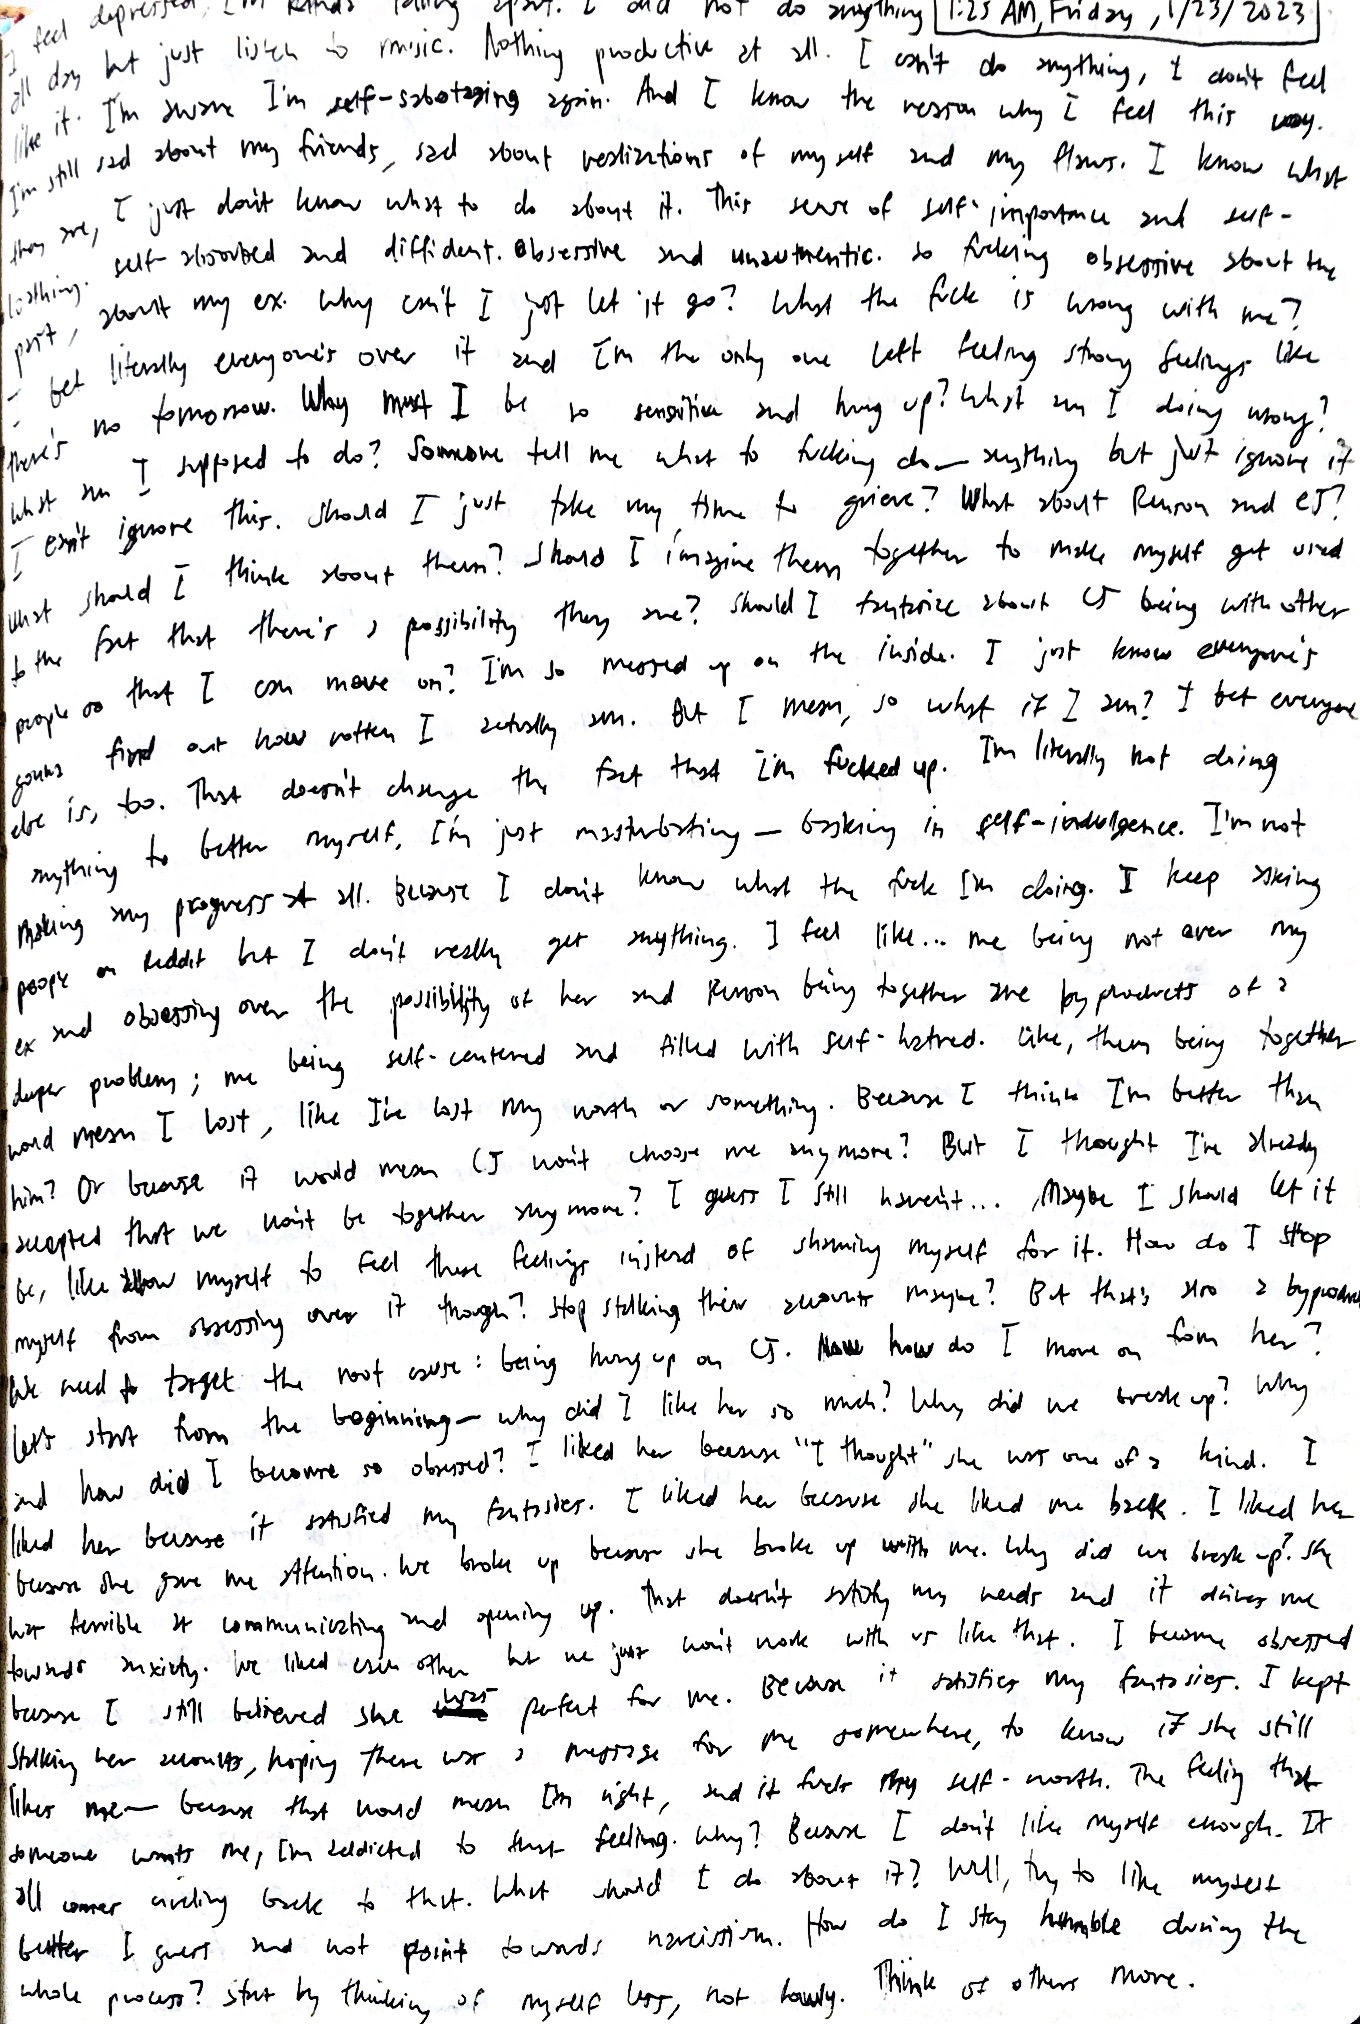 I feel depressed, I'm kinda falling apart. I did not do anything 1:25 AM, Friday, 1/23/2023
all day but just listen to music. Nothing productive at all. I can't do anything, I don't feel
like it. I'm aware I'm self-sabotaging again. And I know the reason why I feel this way.
I'm still sad about my friends, sad about realizations of myself and my flaws. I know what
they are, I just don't know what to do about it. This sense of self-importance and self-
loathing. self-absorbed and diffident. Obsessive and unauthentic. so fucking obsessive about the
past, about my ex. Why can't I just let it go? What the fuck is wrong with me?
I bet literally everyone's over it and I'm the only one left feeling strong feelings like
there's no tomorrow. Why must I be so sensitive and hung up? What am I doing wrong?
What am I supposed to do? Someone tell me what to fucking do— anything but just ignore it
I can't ignore this. Should I just take my time to grieve? What about and CJ?
What should I think about them? Should I imagine them together to make myself get used
to the fact that there's a possibility they are? Should I fantasize about CJ being with other
people so that I can move on? I'm so messed up on the inside. I just know everyone's
gonna find out how rotten I actually am. But I mean, so what if I am? I bet everyone
else is, too. That doesn't change the fact that I'm fucked up. I'm literally not doing
anything to better myself, I'm just masturbating — basking in self-indulgence. I'm not
making any progress at all. Because I don't know what the fuck I'm doing. I keep asking
people on Reddit but I don't really get anything. I feel like... me being not over my
ex and obsessing over the possibility of her and being together are byproducts of a
deeper problem; me being self-centered and filled with self-hatred. Like, them being together
would mean I lost, like I've lost my worth or something. Because I think I'm better than
him? Or because it would mean CJ won't choose me anymore? But I thought I've already
accepted that we won't be together anymore? I guess I still haven't... Maybe I should let it
be, like allow myself to feel these feelings instead of shaming myself for it. How do I stop
myself from obsessing over it though? Stop stalking their accounts maybe? But that's also a byproduct
We need to target the root cause: being hung up on CJ. Now how do I move on from her?
Let's start from the beginning— why did I like her so much? Why did we break up? Why
and how did I become so obsessed? I liked her because "I thought" she was one of a kind. I
liked her because it satisfied my fantasies. I liked her because she liked me back. I liked her
because she gave me attention. We broke up because she broke up with me. Why did we break up? She
was terrible at communicating and opening up. That doesn't satisfy my needs and it drives me
towards anxiety. We liked each other but we just won't work with us like that. I became obsessed
because I still believed she was perfect for me. Because it satisfies my fantasies. I kept
stalking her accounts, hoping there was a message for me somewhere, to know if she still
likes me— because that would mean I'm right, and it fuels my self-worth. The feeling that
someone wants me, I'm addicted to that feeling. Why? Because I don't like myself enough. It
all comes circling back to that. What should I do about it? Well, try to like myself
better I guess and not point towards narcissism. How do I stay humble during the
whole process? Start by thinking of myself less, not lowly. Think of others more.